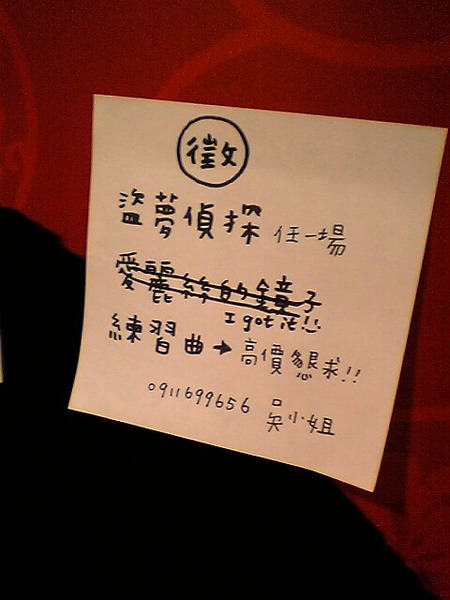 徵
盜夢偵探 任一場
愛麗絲的鏡子
I got it!!
練習曲→高價懇求!!
0911699656 吳小姐